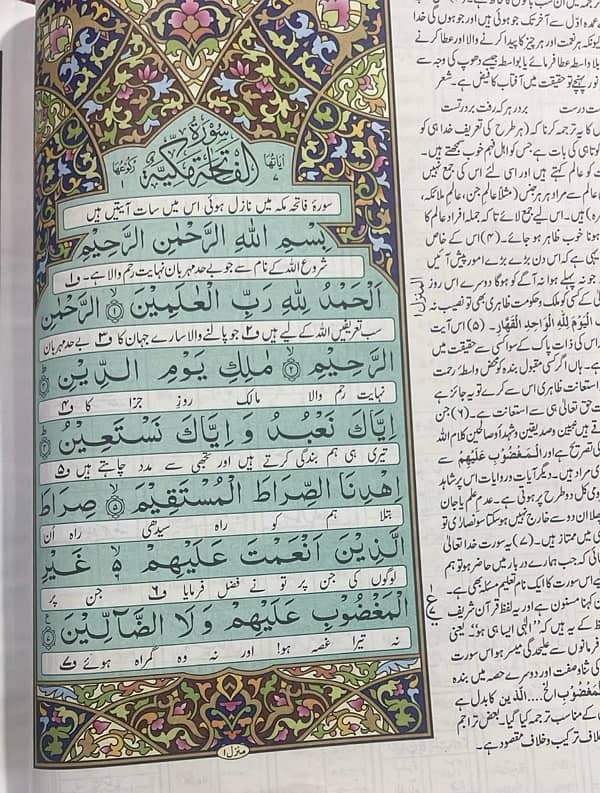 سُوْرَةُ
اٰیَاتُهَا ۷
الْفَاتِحَةِ مَکِّیَّةٌ
رُکُوْعُهَا ۱
سورۂ فاتحہ مکہ میں نازل ہوئی اس میں سات آیتیں ہیں
بِسْمِ اللّٰهِ الرَّحْمٰنِ الرَّحِیْمِ
شروع اللہ کے نام سے جو بے حد مہربان نہایت رحم والا ہے۔ ف۱
اَلْحَمْدُ لِلّٰهِ رَبِّ الْعٰلَمِیْنَ ۱ الرَّحْمٰنِ
سب تعریفیں اللہ کے لیے ہیں ف۲ جو پالنے والا سارے جہان کا ف۳ بے حد مہربان
الرَّحِیْمِ ۲ مٰلِكِ یَوْمِ الدِّیْنِ ۳
نہایت رحم والا مالک روزِ جزا کا ف۴
اِیَّاكَ نَعْبُدُ وَ اِیَّاكَ نَسْتَعِیْنُ ۴
تیری ہی ہم بندگی کرتے ہیں اور تجھی سے مدد چاہتے ہیں ف۵
اِهْدِنَا الصِّرَاطَ الْمُسْتَقِیْمَ ۵ صِرَاطَ
بتلا ہم کو راہ سیدھی راہ اُن
الَّذِیْنَ اَنْعَمْتَ عَلَیْهِمْ ۶ غَیْرِ
لوگوں کی جن پر تو نے فضل فرمایا ف۶ جن پر
الْمَغْضُوْبِ عَلَیْهِمْ وَلَا الضَّآلِّیْنَ ۷
نہ تیرا غصہ ہوا اور نہ وہ گمراہ ہوئے ف۷
منزل ۱
عمدہ اوّل سے آخر تک جو ہوئی ہیں اور جو ہوں گی خدا
کیونکہ ہر نعمت اور ہر چیز کا پیدا کرنے والا اور عطا کرنے
بلا واسطہ عطا فرمائے یا بواسطہ جیسے دھوپ کی وجہ سے
نور پہنچے تو حقیقت میں آفتاب کا فیض ہے۔ شعر
درست بر در ہر کہ رفت بر در تست
کا یہ ترجمہ کرنا کہ (ہر طرح کی تعریف خدا ہی کو
کوتاہی کی بات ہے جس کو اہل فہم خوب سمجھتے ہیں۔
کو عالم کہتے ہیں اور اسی لئے اس کی جمع نہیں
عالم سے مراد ہر ہر جنس (مثلاً عالم جن، عالم ملائکہ،
ہیں۔ اس لیے جمع لائے تاکہ جملہ افراد عالم کا
ہونا خوب ظاہر ہو جائے۔ (۴) اس کے خاص
یہی ہے کہ اس دن بڑے بڑے امور پیش آئیں
جو نہ پہلے ہوا نہ آگے کو ہوگا دوسرے اس روز
کے کسی کو ملک و حکومت ظاہری بھی تو نصیب نہ
الْیَوْمَ لِلّٰهِ الْوَاحِدِ الْقَهَّارِ۔ (۵) اس آیت
اس کی ذات پاک کے سوا کسی سے حقیقت میں
ہے۔ ہاں اگر کسی مقبول بندہ کو محض واسطۂ رحمت
استعانت ظاہری اس سے کرے تو یہ جائز ہے
حق تعالیٰ ہی سے استعانت ہے۔ (۶) جن
نبیین و صدیقین و شہدأ و صالحین کلام اللہ
کی تصریح ہے اور الْمَغْضُوْبِ عَلَیْهِمْ سے
مراد ہیں۔ دیگر آیات و روایات اس پر شاہد
دو طرح پر ہوتی ہے۔ عدم علم یا جان
ان دو سے خارج نہیں ہو سکتا سو نصاریٰ تو
میں ممتاز ہیں۔ (۷) یہ سورت خدا تعالیٰ
کہ جب ہمارے دربار میں حاضر ہو تو ہم
اس سورت کا ایک نام تعلیم مسئلہ بھی ہے۔
کہنا مسنون ہے اور یہ لفظ قرآن شریف
کے یہ ہیں کہ "الٰہی ایسا ہی ہو" یعنی
نافرمانوں سے علیحدگی میسر ہو اس سورت
کی ثنا و صفت اور دوسرے حصہ میں بندہ
الَّذِیْنَ کا بدل ہے
کے مناسب ترجمہ کیا گیا۔ بعض تراجم
خلاف ترکیب و خلاف مقصود ہے۔